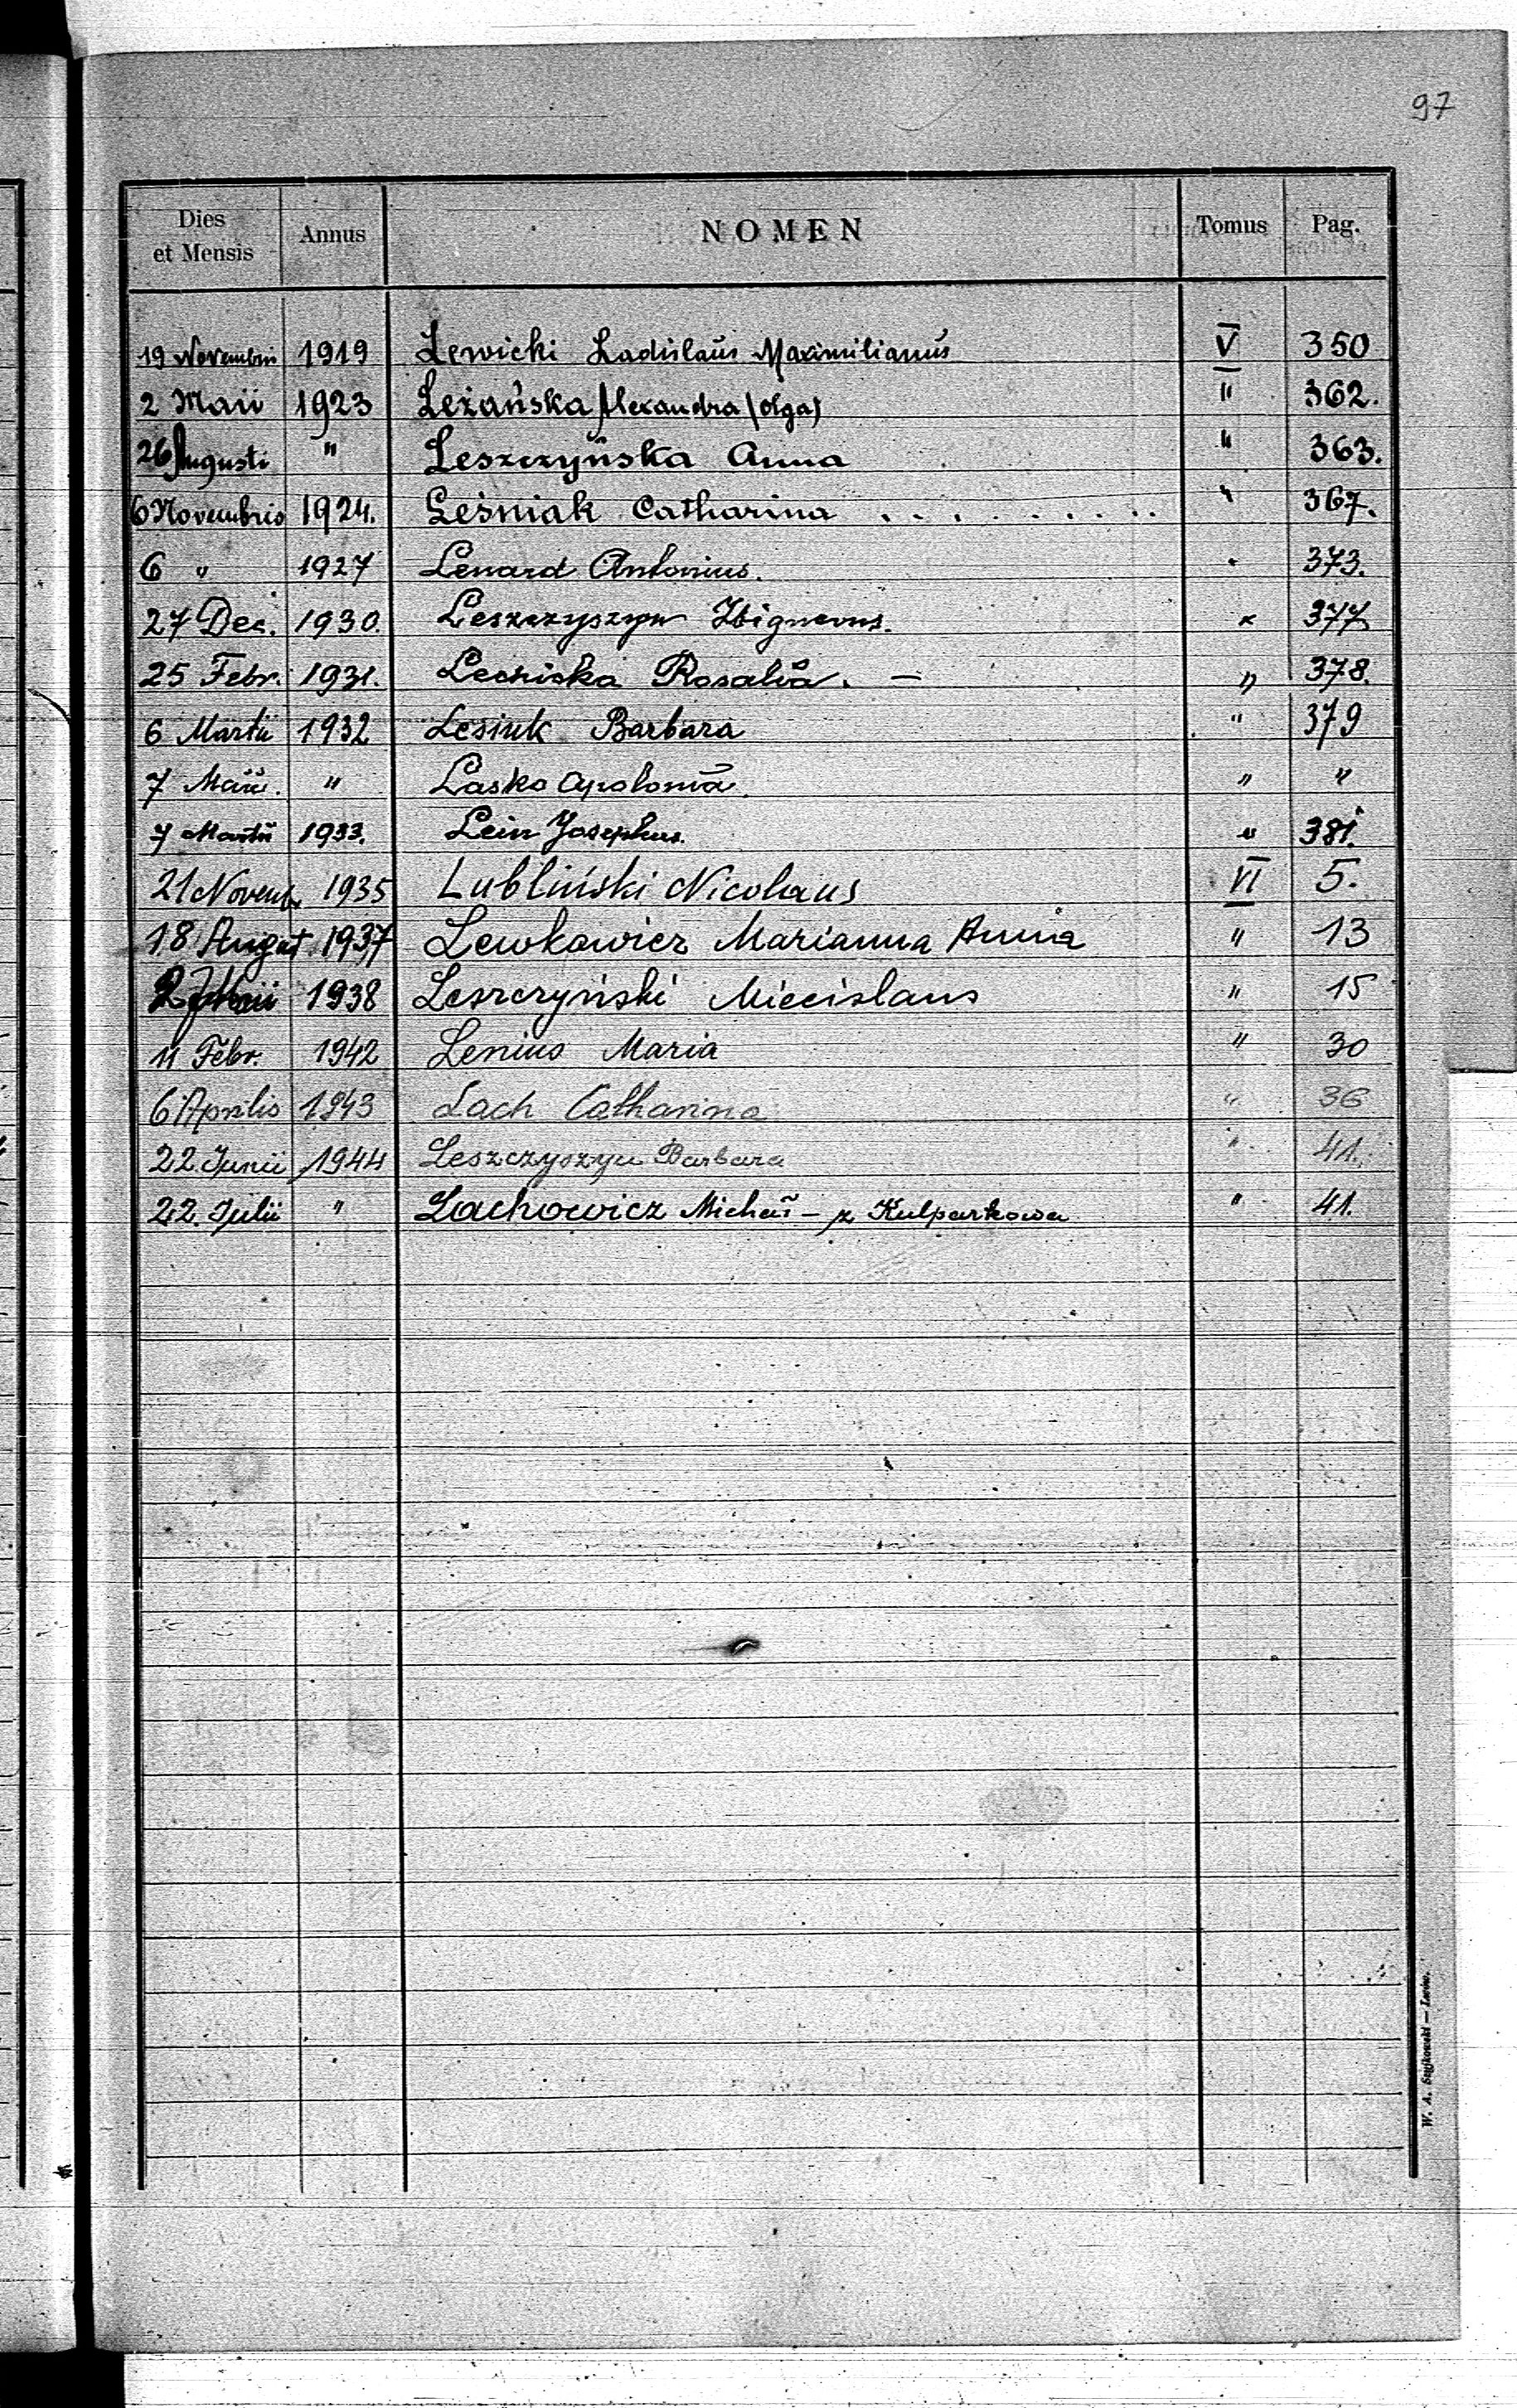 97
Dies et Mensis Annus NOMEN Tomus Pag.
19 Novembris 1919 Lewicki Ladislaus Maximilianus V 350
2 Maii 1923 Leżańska Alexandra (Olga) " 362.
26 Augusti " Leszczyńska Anna " 363.
6 Novembris 1924. Leśniak Catharina . . . . . . . . . " 367.
6 " 1927 Lenard Antonius. " 373.
27 Dec. 1930. Leszczyszyn Zbigneus. " 377
25 Febr. 1931. Rosalia. — " 378.
6 Martii 1932 Lesiuk Barbara " 379
7 Maii. " Lasko Apolonia. " "
7 Martii 1933. Lein Josephus. " 381.
21 Novemb. 1935 Lubliński Nicolaus VI 5.
18 August 1937 Lewkowicz Marianna Anna " 13
1938 Leszczyński Miecislaus " 15
11 Febr. 1942 Lenius Maria " 30
6 Aprilis 1943 Lach Catharina " 36
22 Junii 1944 Leszczyszyn Barbara " 41.
22. Julii " Lachowicz Michał - z Kulparkowa " 41.
W. A. Szyjkowski — Lwów.